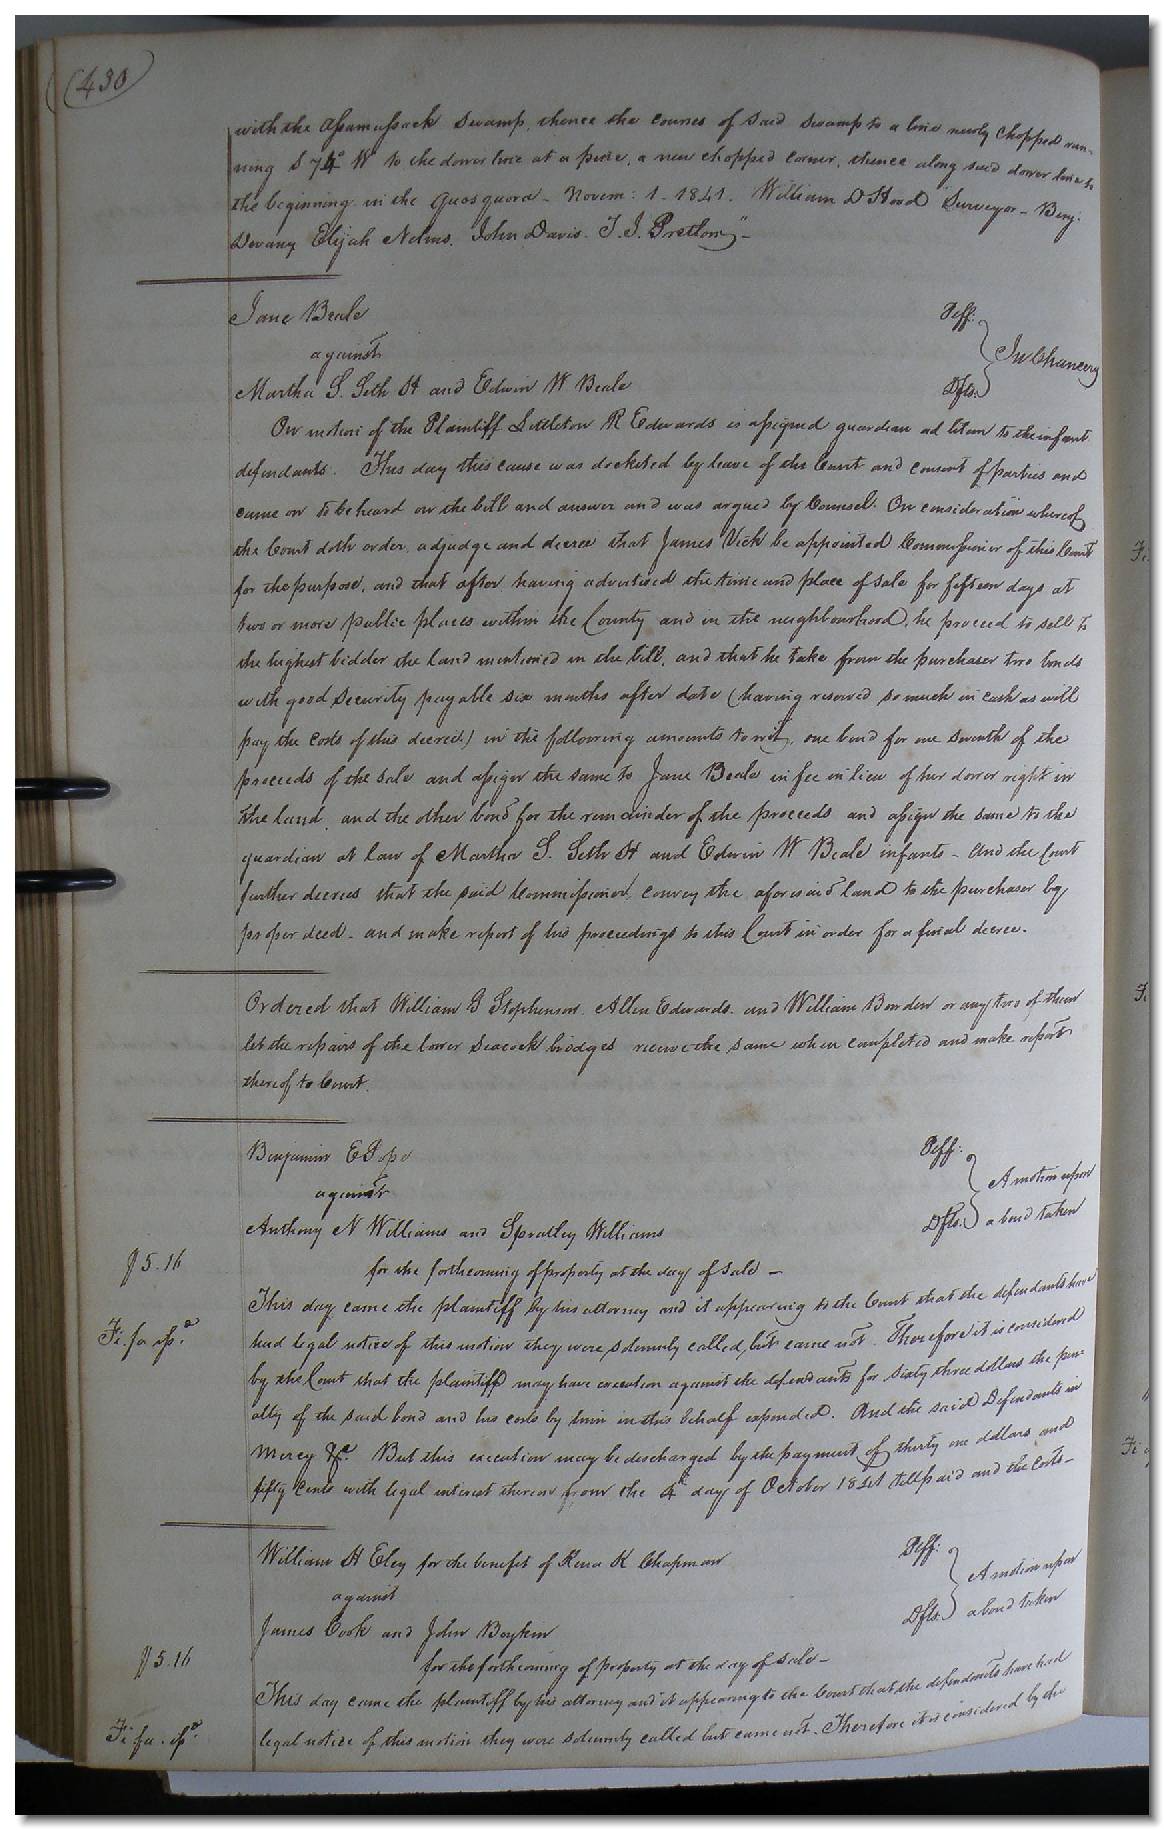 (430)
with the Assamussack Swamp, thence the courses of said swamp to a line newly chopped run-
ning S 74° W to the dower line at a pine, a new chopped corner, thence along said dower line to
the beginning in the Quosquora - Novem: 1 - 1841. William D Hood Surveyor - Benj:
Devany Elijah Nelms. John Davis. T. J. Pretlow" -
Jane Beale Plff:
against In Chancery
Martha S. Seth H and Edwin W Beale Dfts.
On motion of the Plaintiff Littleton R Edwards is assigned guardian ad litem to the infant
defendants. This day this cause was docketed by leave of the Court and consent of parties and
came on to be heard on the bill and answer and was argued by Counsel. On consideration whereof
the Court doth order, adjudge and decree that James Vick be appointed Commissioner of this Court
for the purpose, and that after having advertised the time and place of sale for fifteen days at
two or more public places within the County and in the neighbourhood, he proceed to sell to
the highest bidder the land mentioned in the bill, and that he take from the purchaser two bonds
with good security payable six months after date (having reserved so much in cash as will
pay the costs of this decree) in the following amounts to wit, one bond for one seventh of the
proceeds of the sale and assign the same to Jane Beale in fee in lieu of her dower right in
the land, and the other bond for the remainder of the proceeds and assign the same to the
guardian at law of Martha S. Seth H and Edwin W Beale infants - And the Court
further decrees that the said Commissioner, convey the aforesaid land to the purchaser by
proper deed - and make report of his proceedings to this Court in order for a final decree.
Ordered that William G Stephenson. Allen Edwards. and William Bowden or any two of them
let the repairs of the lower Seacock bridges receive the same when completed and make report
thereof to Court.
Benjamin E Pope Plff:
against A motion upon
Anthony N Williams and Spratley Williams Dfts. a bond taken
$5.16 for the forthcoming of property at the day of sale -
This day came the plaintiff by his attorney and it appearing to the Court that the defendants have
Fi. fa ispd. had legal notice of this motion they were solemnly called, but came not. Therefore it is considered
by the Court that the plaintiff may have execution against the defendants for sixty three dollars the pen-
alty of the said bond and his costs by him in this behalf expended. And the said Defendants in
Mercy &c. But this execution may be discharged by the payment of thirty one dollars and
fifty cents with legal interest thereon from the 4th day of October 1841 till paid and the costs -
William H Eley for the benefit of Rena K Chapman Plff:
against A motion upon
James Cook and John Boykin Dfts. a bond taken
$5.16 for the forthcoming of property at the day of sale -
This day came the plaintiff by his attorney and it appearing to the Court that the defendants have had
Fi fa. ispd. legal notice of this motion they were solemnly called but came not. Therefore it is considered by the